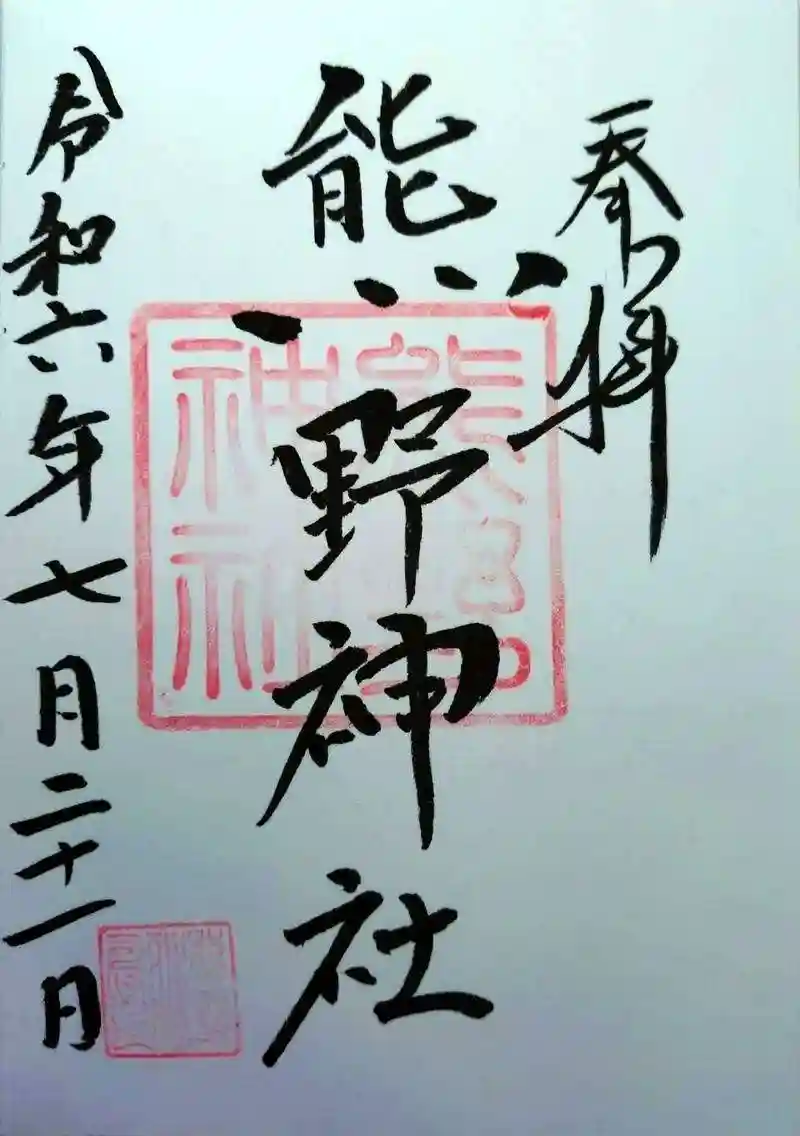 奉拝
熊野神社
令和六年七月二十一日